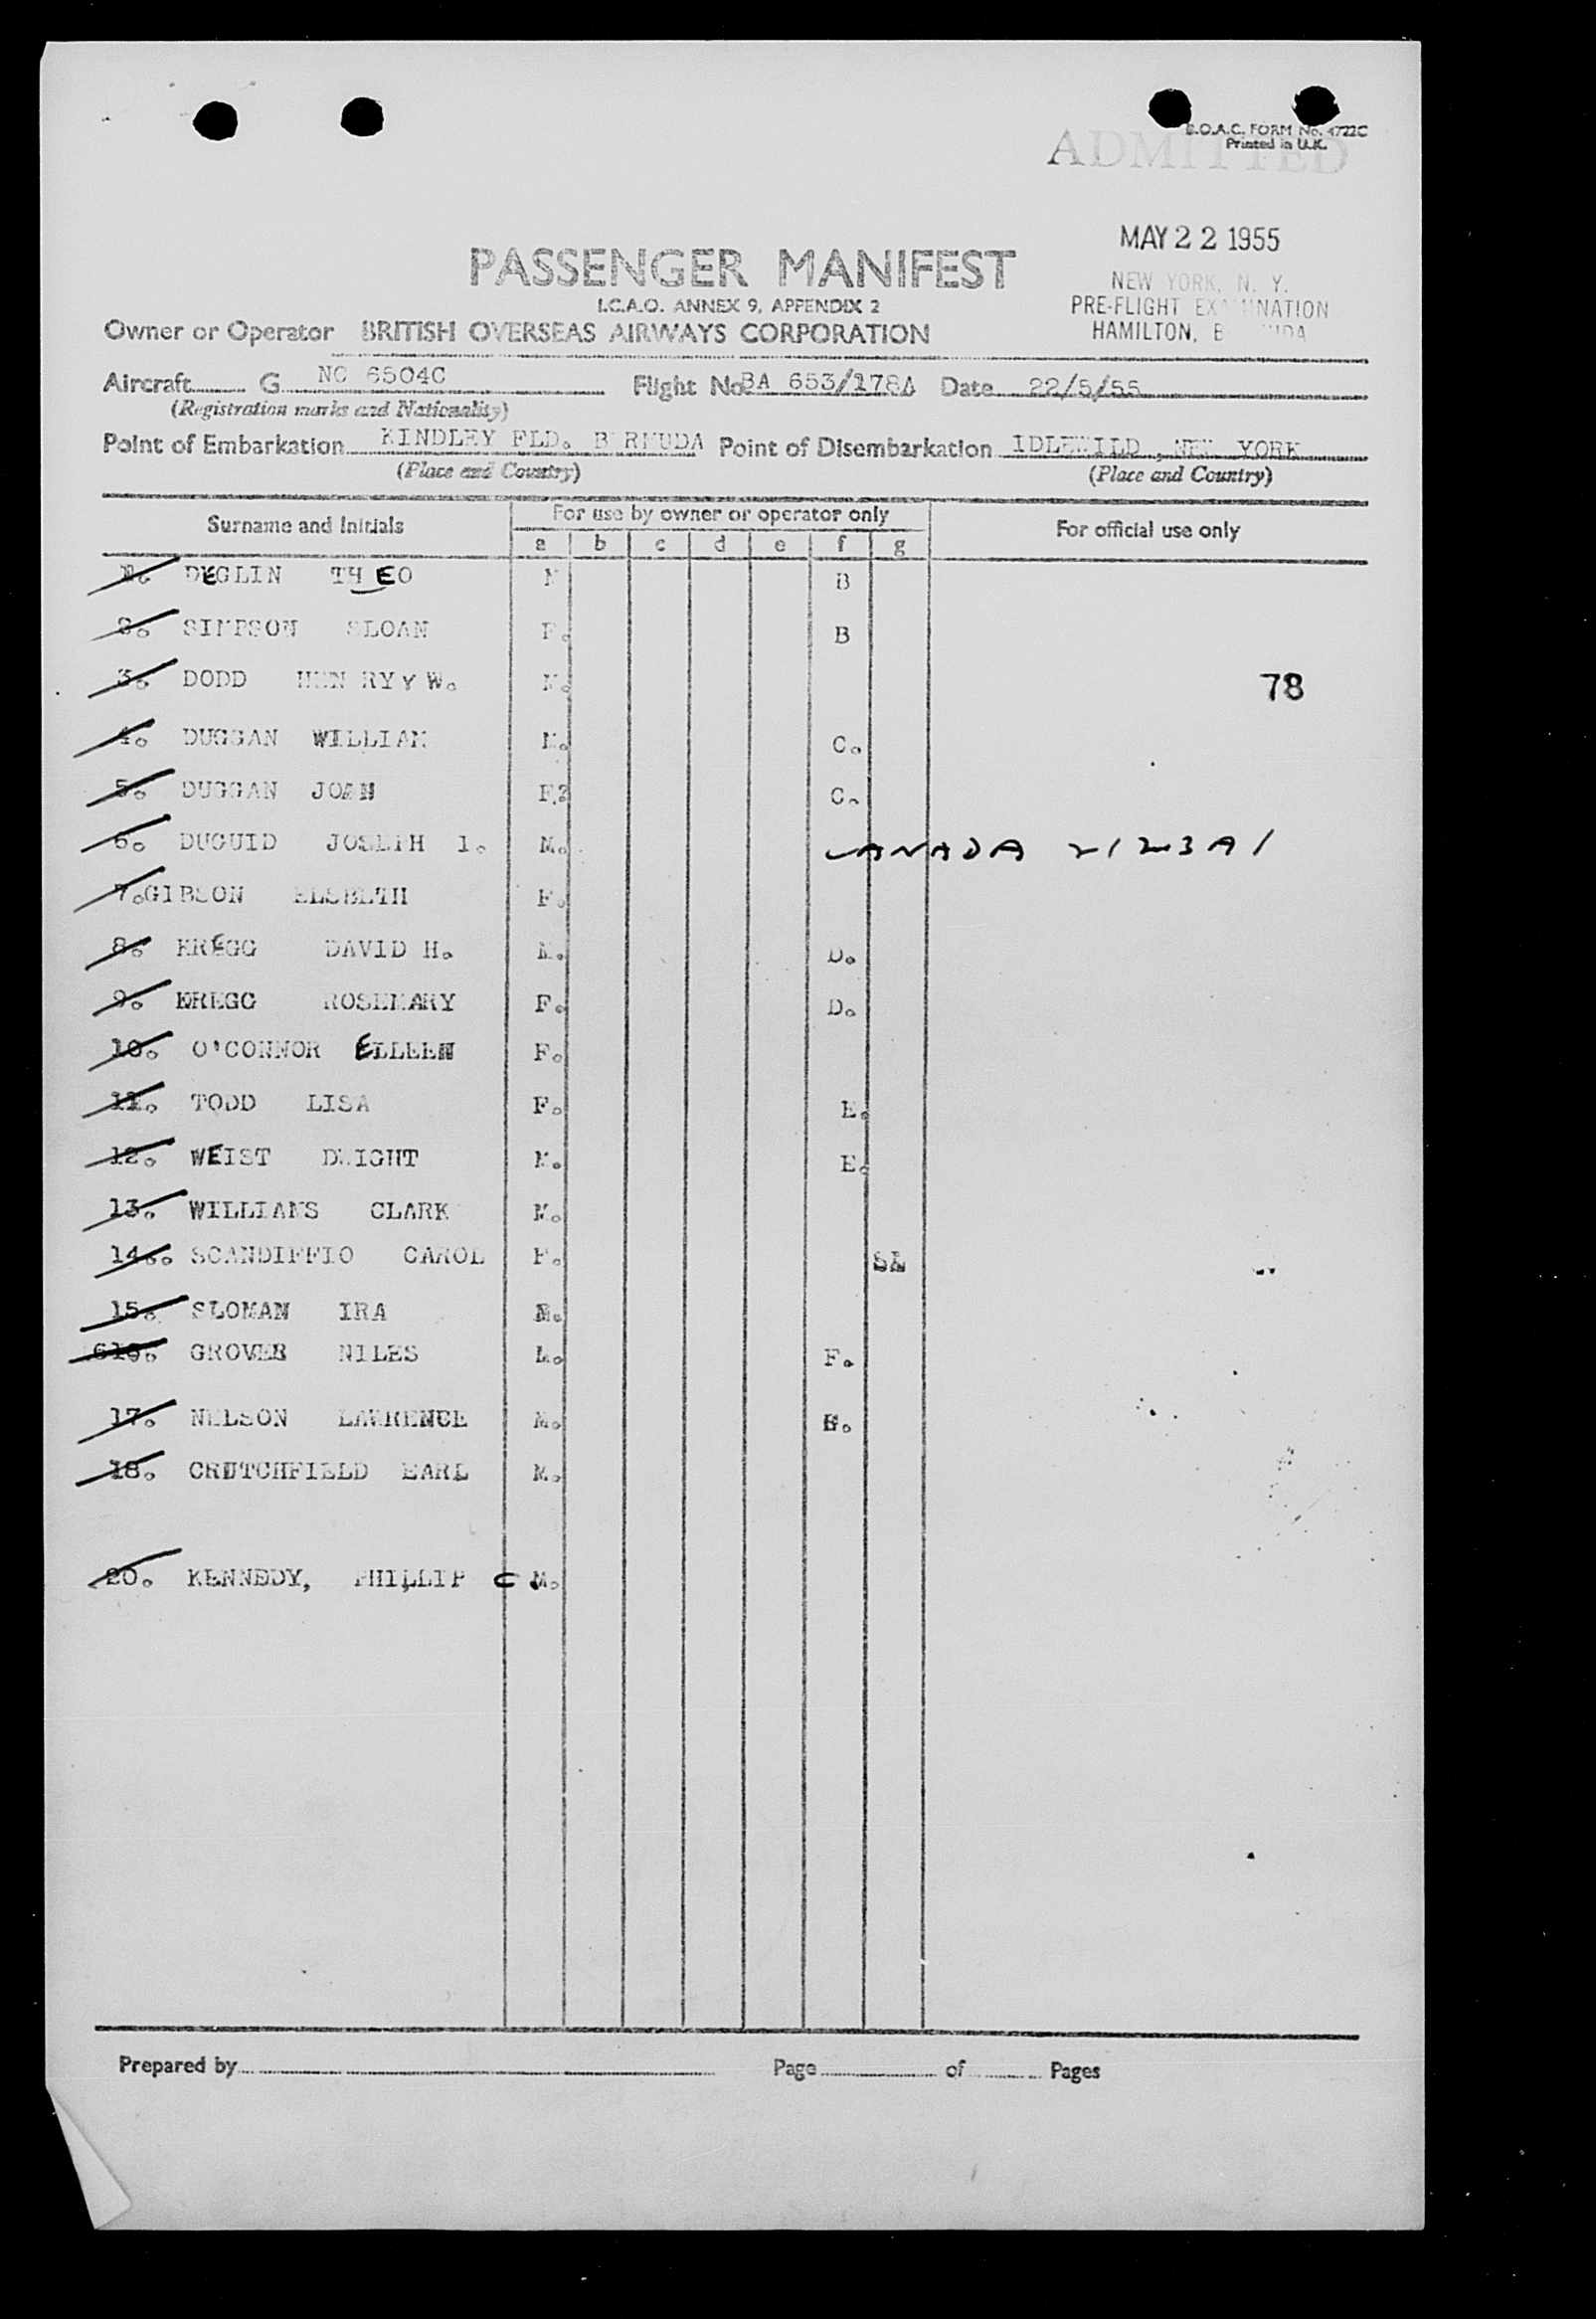 B.O.A.C. FORM No. 4722C
Printed in U.K.
ADMITTED
MAY 22 1955
NEW YORK, N. Y.
PRE-FLIGHT EXAMINATION
HAMILTON, BERMUDA
PASSENGER MANIFEST
I.C.A.O. ANNEX 9, APPENDIX 2
Owner or Operator BRITISH OVERSEAS AIRWAYS CORPORATION
Aircraft G NC 6504C Flight No. BA 653/178A Date 22/5/55
(Registration marks and Nationality)
Point of Embarkation KINDLEY FLD. BERMUDA Point of Disembarkation IDLEWILD, NEW YORK
(Place and Country) (Place and Country)
Surname and Initials For use by owner or operator only For official use only
a b c d e f g
1. DEGLIN THEO M B
2. SIMPSON SLOAN F. B
3. DODD HENRYY W. M. 78
4. DUGGAN WILLIAM M. C.
5. DUGGAN JOAN F. C.
6. DUGUID JOSEPH I. M. CANADA 2123A1
7. GIBSON ELSBETH F.
8. KREGG DAVID H. M. D.
9. KREGG ROSEMARY F. D.
10. O'CONNOR EILEEN F.
11. TODD LISA F. E.
12. WEIST DWIGHT M. E.
13. WILLIAMS CLARK M.
14. SCANDIFFIO CAROL F.
15. SLOMAN IRA M.
16. GROVER NILES M. F.
17. NELSON LAWRENCE M.
18. CRUTCHFIELD EARL M.
20. KENNEDY, PHILLIP C. M.
Prepared by Page of Pages